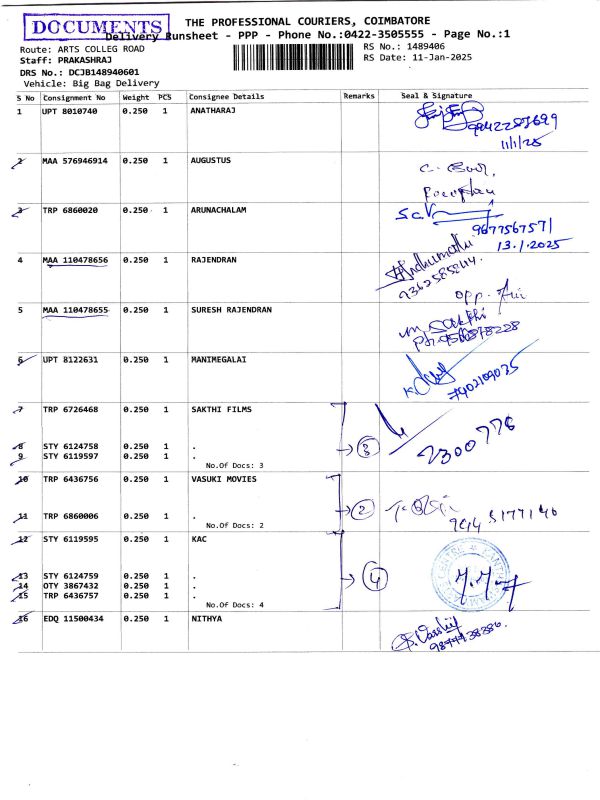 DOCUMENTS
THE PROFESSIONAL COURIERS, COIMBATORE
Delivery Runsheet - PPP - Phone No.:0422-3505555 - Page No.:1
Route: ARTS COLLEG ROAD
RS No.: 1489406
Staff: PRAKASHRAJ
RS Date: 11-Jan-2025
DRS No.: DCJB148940601
Vehicle: Big Bag Delivery
S No Consignment No Weight PCS Consignee Details Remarks Seal & Signature
1 UPT 8010740 0.250 1 ANATHARAJ
11/1/25
2 MAA 576946914 0.250 1 AUGUSTUS
3 TRP 6860020 0.250 1 ARUNACHALAM
9677567571
13.1.2025
4 MAA 110478656 0.250 1 RAJENDRAN
5 MAA 110478655 0.250 1 SURESH RAJENDRAN
6 UPT 8122631 0.250 1 MANIMEGALAI
7402109035
7 TRP 6726468 0.250 1 SAKTHI FILMS
8 STY 6124758 0.250 1 .
9 STY 6119597 0.250 1 .
No.Of Docs: 3
3
2300776
10 TRP 6436756 0.250 1 VASUKI MOVIES
11 TRP 6860006 0.250 1 .
No.Of Docs: 2
2
12 STY 6119595 0.250 1 KAC
13 STY 6124759 0.250 1 .
14 OTY 3867432 0.250 1 .
15 TRP 6436757 0.250 1 .
No.Of Docs: 4
4
16 EDQ 11500434 0.250 1 NITHYA